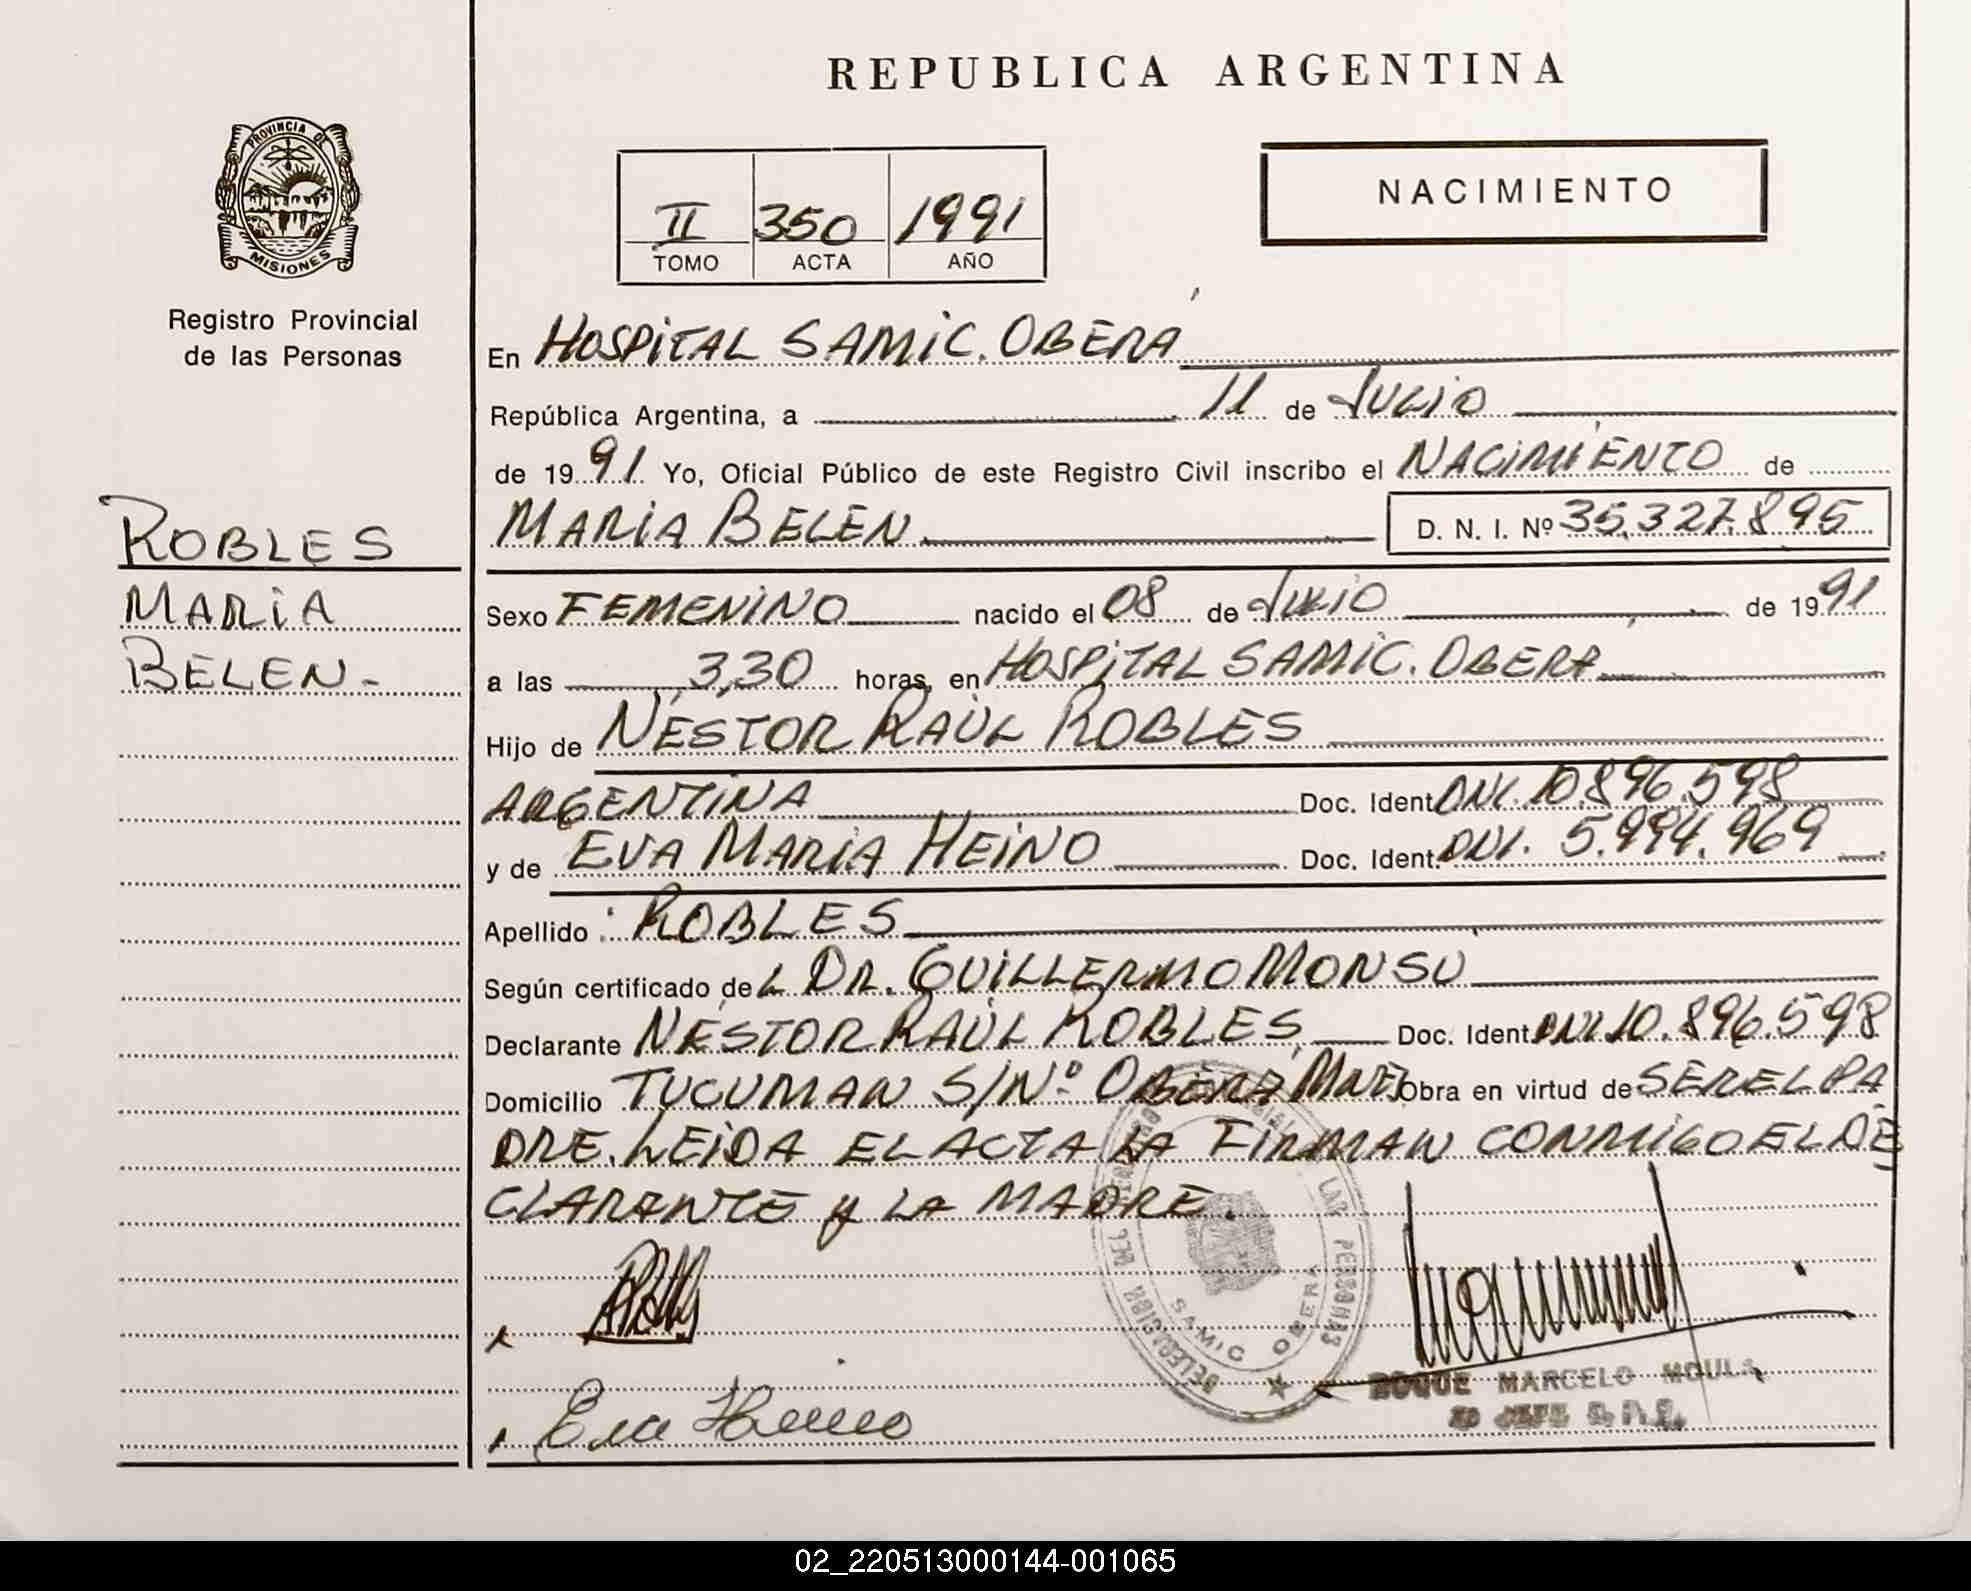 REPUBLICA ARGENTINA
PROVINCIA DE
MISIONES
Registro Provincial
de las Personas
NACIMIENTO
II 350 1991
TOMO ACTA AÑO
En HOSPITAL SAMIC. OBERA
República Argentina, a 11 de JULIO
de 1991 Yo, Oficial Público de este Registro Civil inscribo el NACIMIENTO de
MARIA BELEN D. N. I. Nº 35.327.895
ROBLES
MARIA
BELEN-
Sexo FEMENINO nacido el 08 de JULIO de 1991
a las 3,30 horas, en HOSPITAL SAMIC. OBERA
Hijo de NESTOR RAUL ROBLES
ARGENTINA Doc. Ident. DNI. 10.896.598
y de EVA MARIA HEINO Doc. Ident. DNI. 5.994.969
Apellido : ROBLES
Según certificado de L DR. GUILLERMO MONSU
Declarante NESTOR RAUL ROBLES, Doc. Ident. DNI 10.896.598
Domicilio TUCUMAN S/Nº OBERA MNES Obra en virtud de SER EL PA
DRE. LEIDA EL ACTA LA FIRMAN CONMIGO EL DE
CLARANTE y LA MADRE.
DELEGACION DEL LAS PERSONAS
SAMIC OBERA
Eva Heino
ROQUE MARCELO
02_220513000144-001065